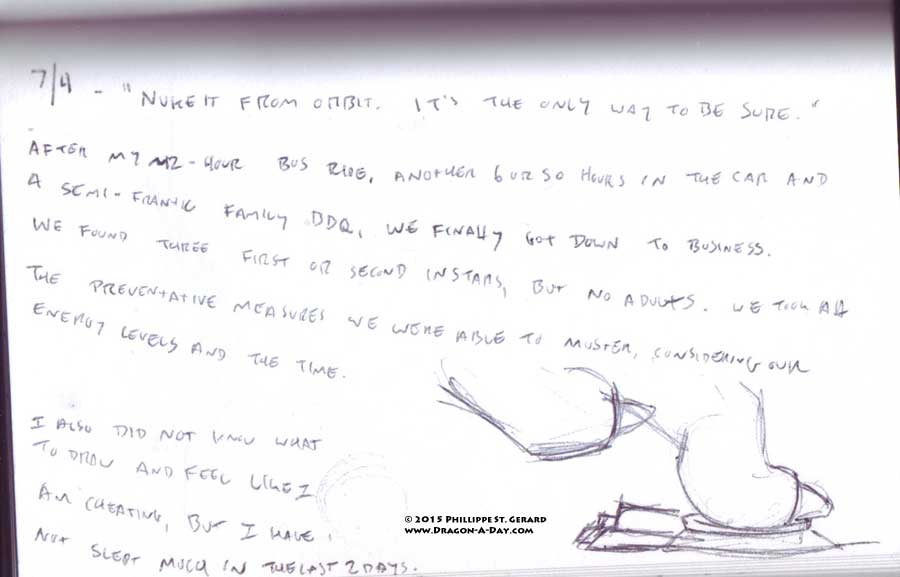 7/4 - "NUKE IT FROM ORBIT. IT'S THE ONLY WAY TO BE SURE."
AFTER MY 12-HOUR BUS RIDE, ANOTHER 6 OR SO HOURS IN THE CAR AND
A SEMI-FRANTIC FAMILY BBQ, WE FINALLY GOT DOWN TO BUSINESS.
WE FOUND THREE FIRST OR SECOND INSTARS, BUT NO ADULTS. WE TOOK ALL
THE PREVENTATIVE MEASURES WE WERE ABLE TO MUSTER, CONSIDERING OUR
ENERGY LEVELS AND THE TIME.
I ALSO DID NOT KNOW WHAT
TO DRAW AND FEEL LIKE I
AM CHEATING, BUT I HAVE
NOT SLEPT MUCH IN THE LAST 2 DAYS.
© 2015 PHILLIPPE ST. GERARD
WWW.DRAGON-A-DAY.COM